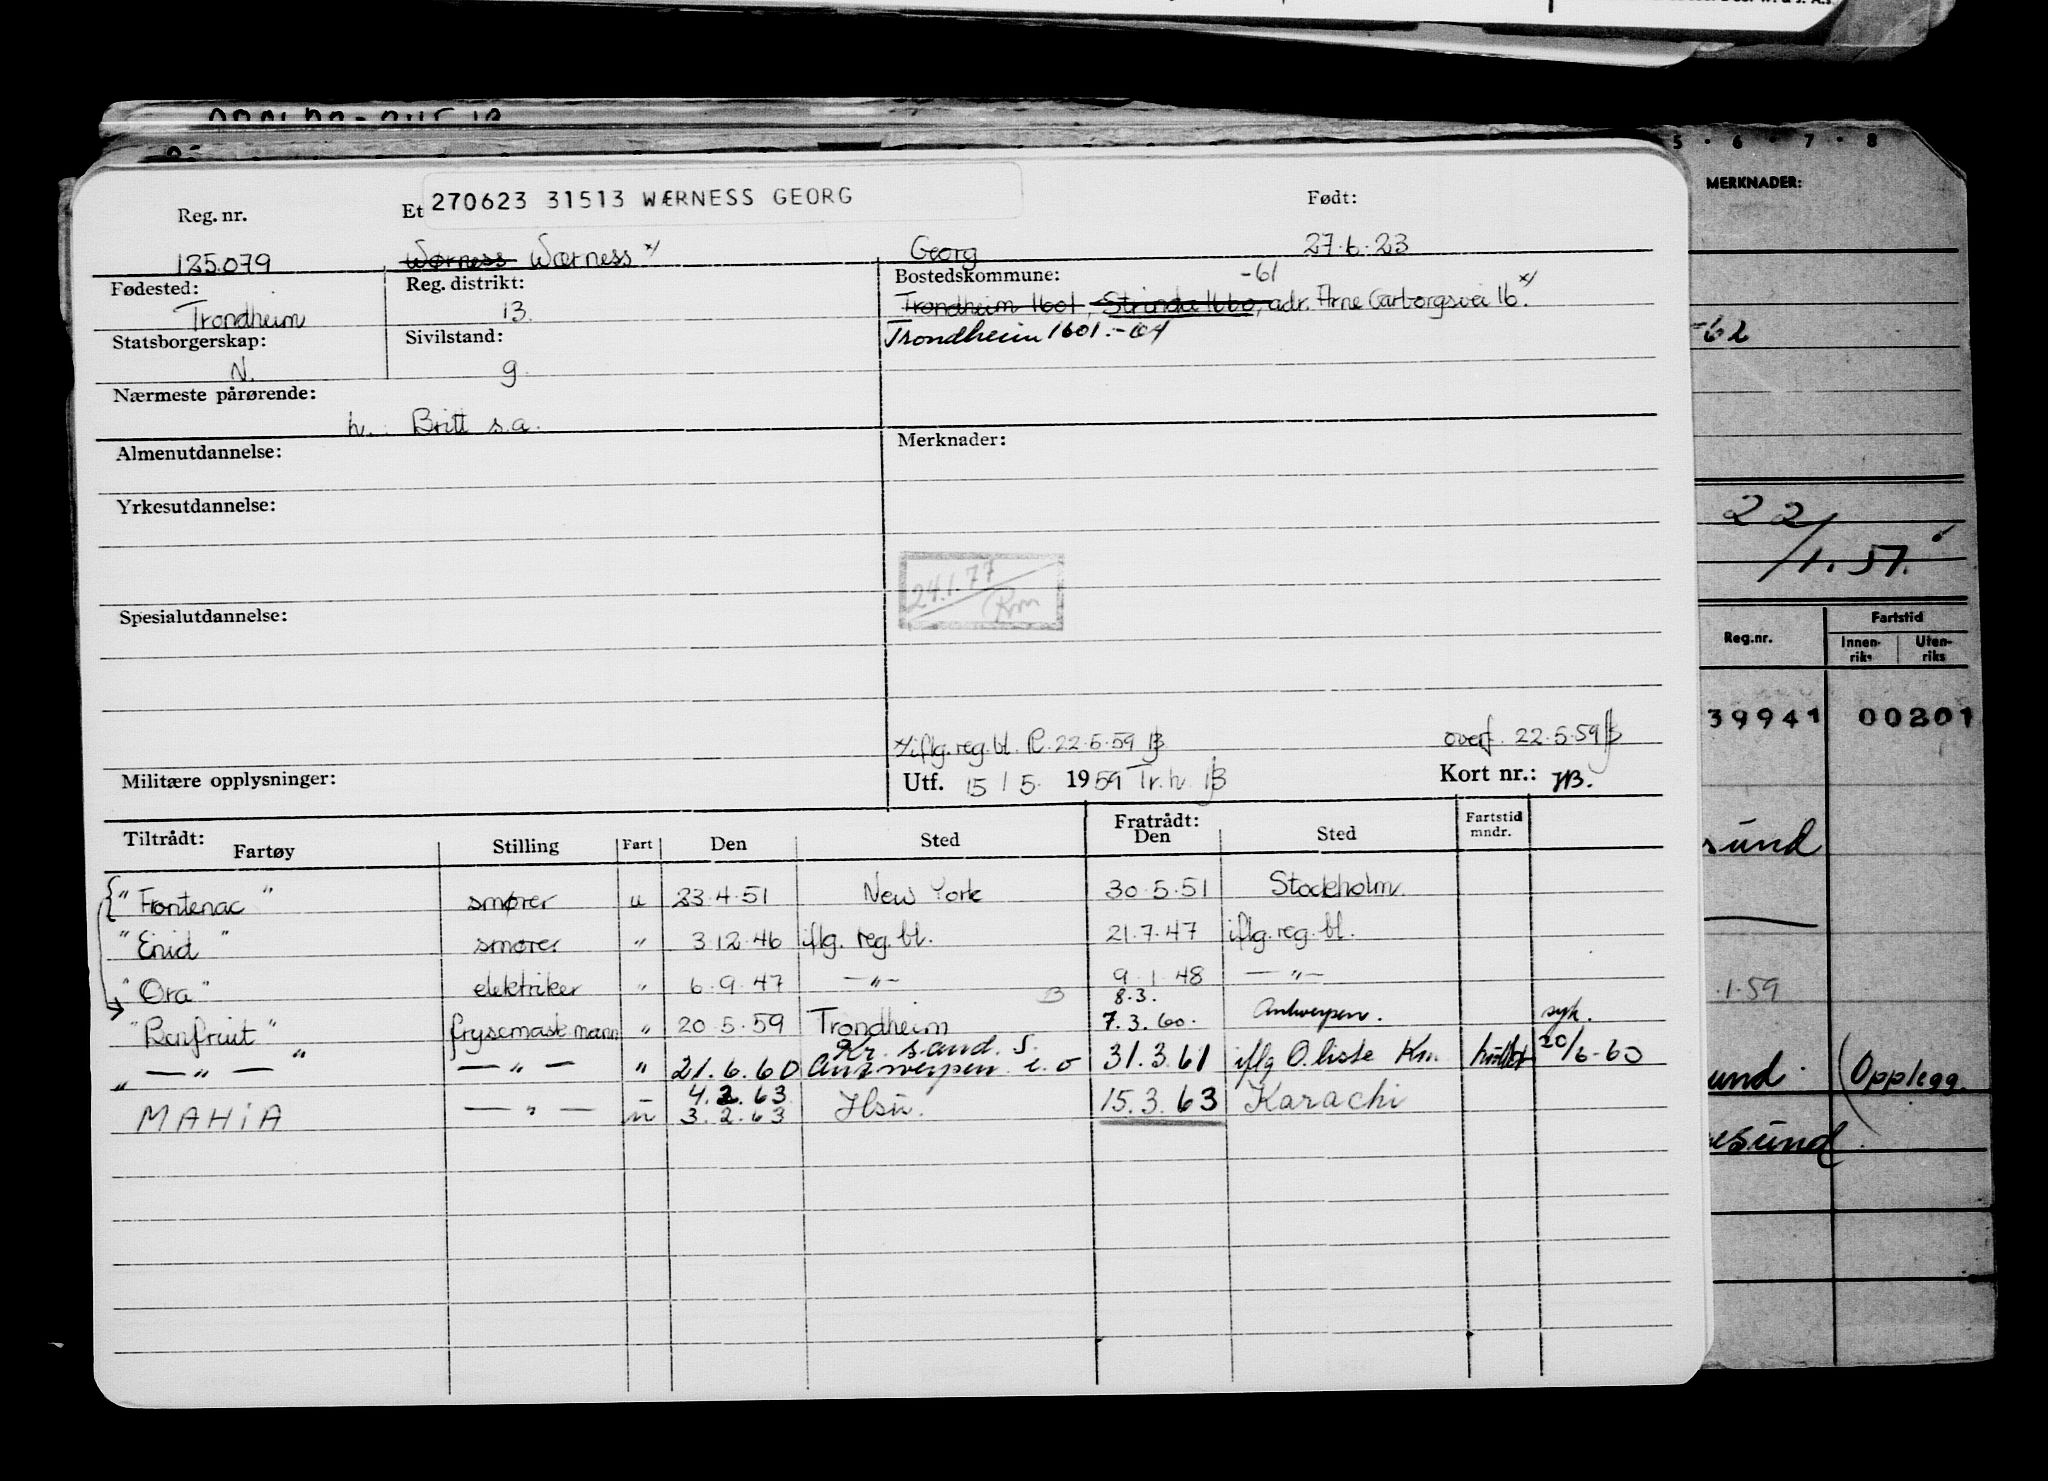 Reg. nr.
Et 270623 31513 WÆRNESS GEORG
Født:
125.079
Wørness Wærness x/
Georg
27.6.23
Fødested:
Reg. distrikt:
Bostedskommune:
-61
Trondheim
13.
Trondheim 1601, Strinda 1660, adr. Arne Garborgsvei 16. x/
Statsborgerskap:
Sivilstand:
Trondheim 1601.-64
N.
g.
Nærmeste pårørende:
h. Britt s.a.
Almenutdannelse:
Merknader:
Yrkesutdannelse:
24.1.77
Spesialutdannelse:
x/ iflg. reg. bl. R. 22.5.59
overf. 22.5.59
Militære opplysninger:
Utf. 15 / 5. 1959 Tr.h.
Kort nr.:
Tiltrådt:
Fartøy
Stilling
Fart
Den
Sted
Fratrådt:
Den
Sted
Fartstid
mndr.
"Frontenac" smører u 23.4.51 New York 30.5.51 Stockholm
"Enid" smører " 3.12.46 iflg. reg. bl. 21.7.47 iflg. reg. bl.
"Ora" elektriker " 6.9.47 — " — 9.1.48 — " —
8.3.
"Benfruit" frysemaskmann " 20.5.59 Trondheim 7.3.60. Antwerpen. syk.
Kr. sand. S.
" — " — " — " — " 21.6.60 Antwerpen e.o 31.3.61 iflg O. liste Kn. 20/6-60
4.2.63
MAHIA — " — 3.2.63 15.3.63 Karachi
5 · 6 · 7 · 8
MERKNADER:
-62
22/1.51.
Reg.nr.
Fartstid
Innen-
riks
Uten-
riks
39941 00201
sund
.1.59
und. (Opplegg.
esund.